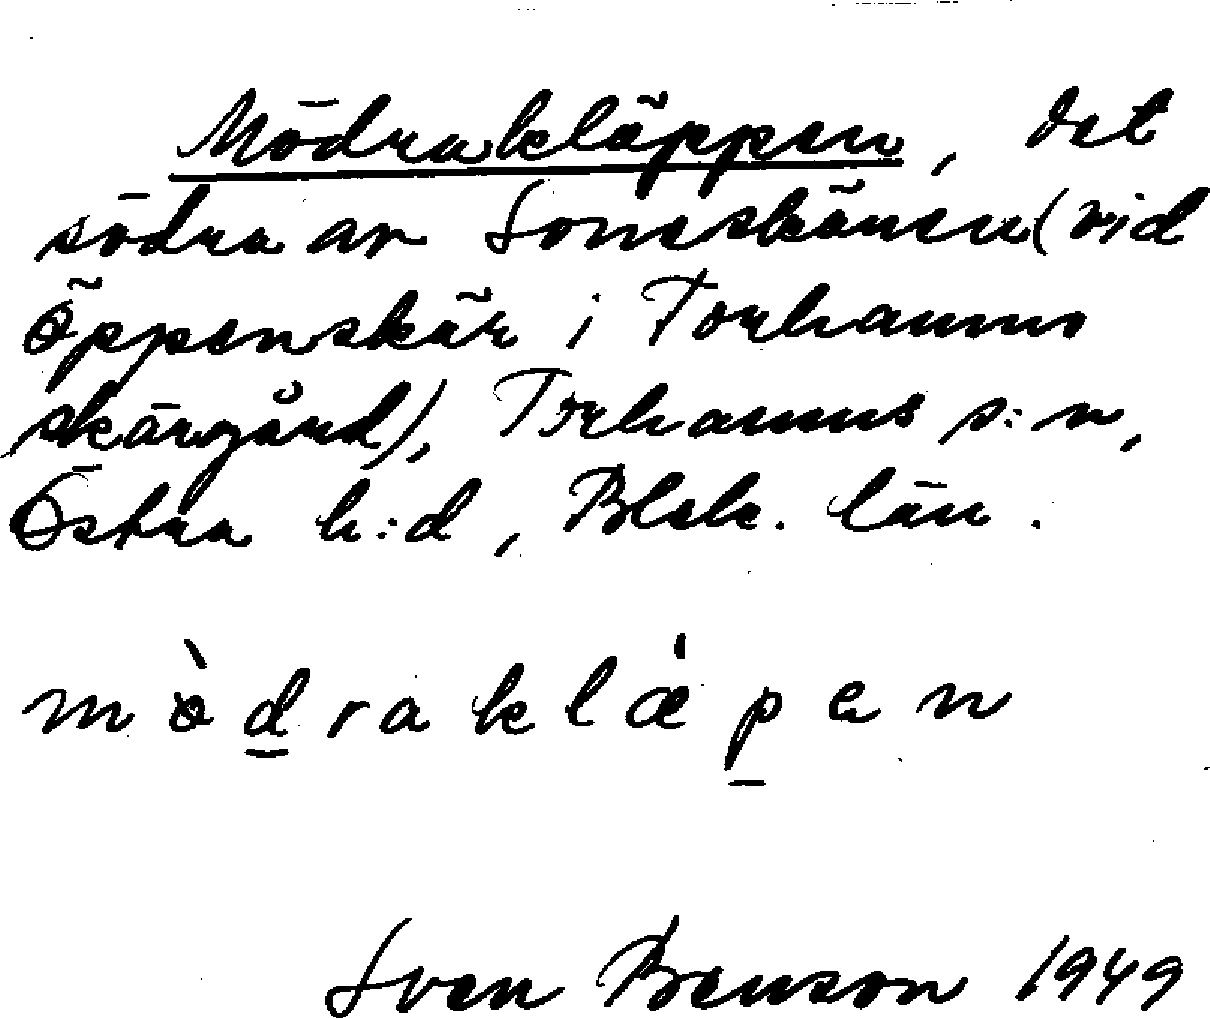 Mödrakläppen, det
södra av Lomeskären (vid
Öppenskär i Torhamns
skärgård), Torhamns s:n,
Östra h:d, Blek. län.
mòdraklǽpen
Sven Benson 1949